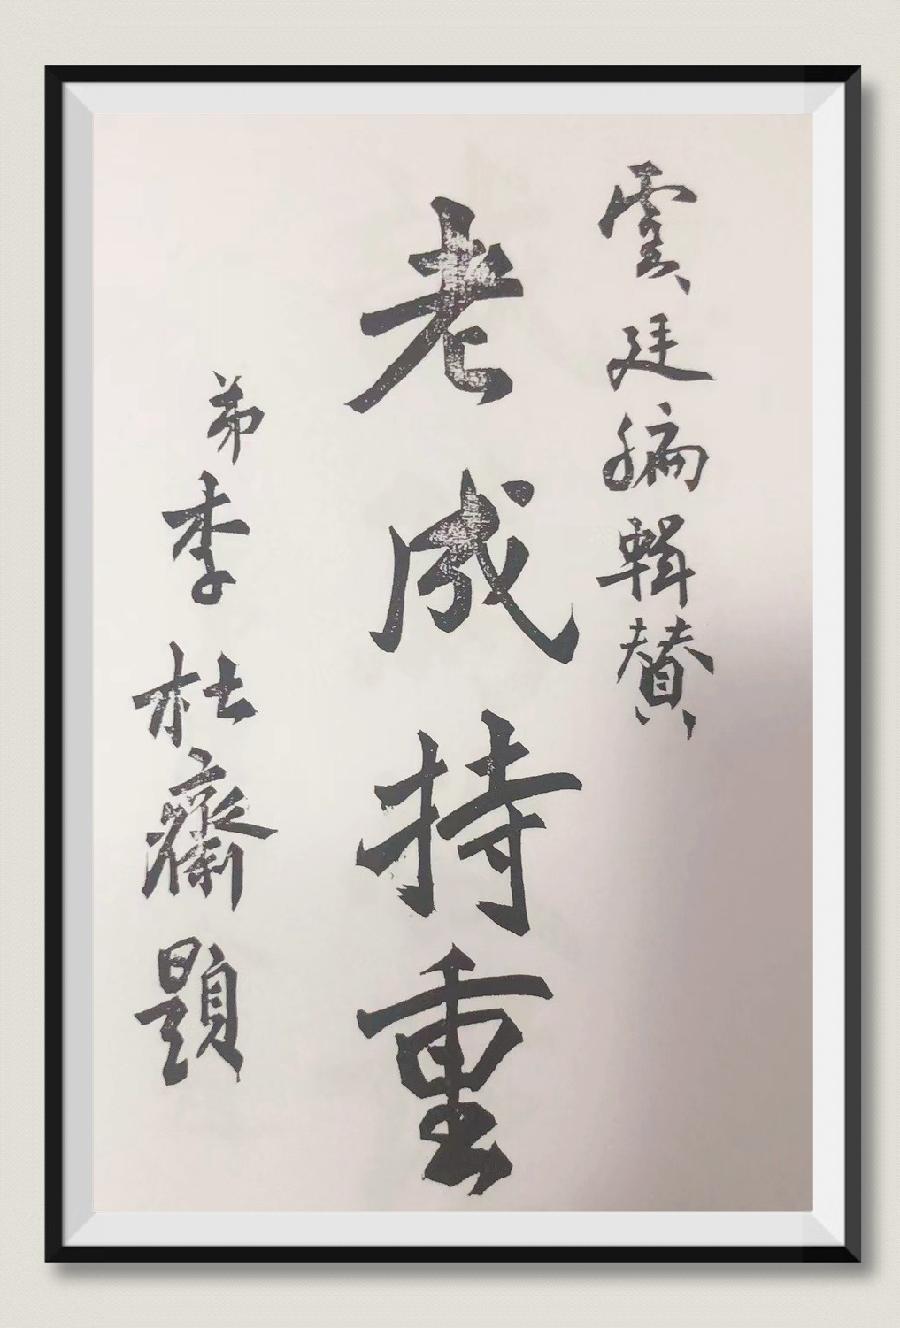 雲廷編輯贊
老成持重
弟李杜齋題